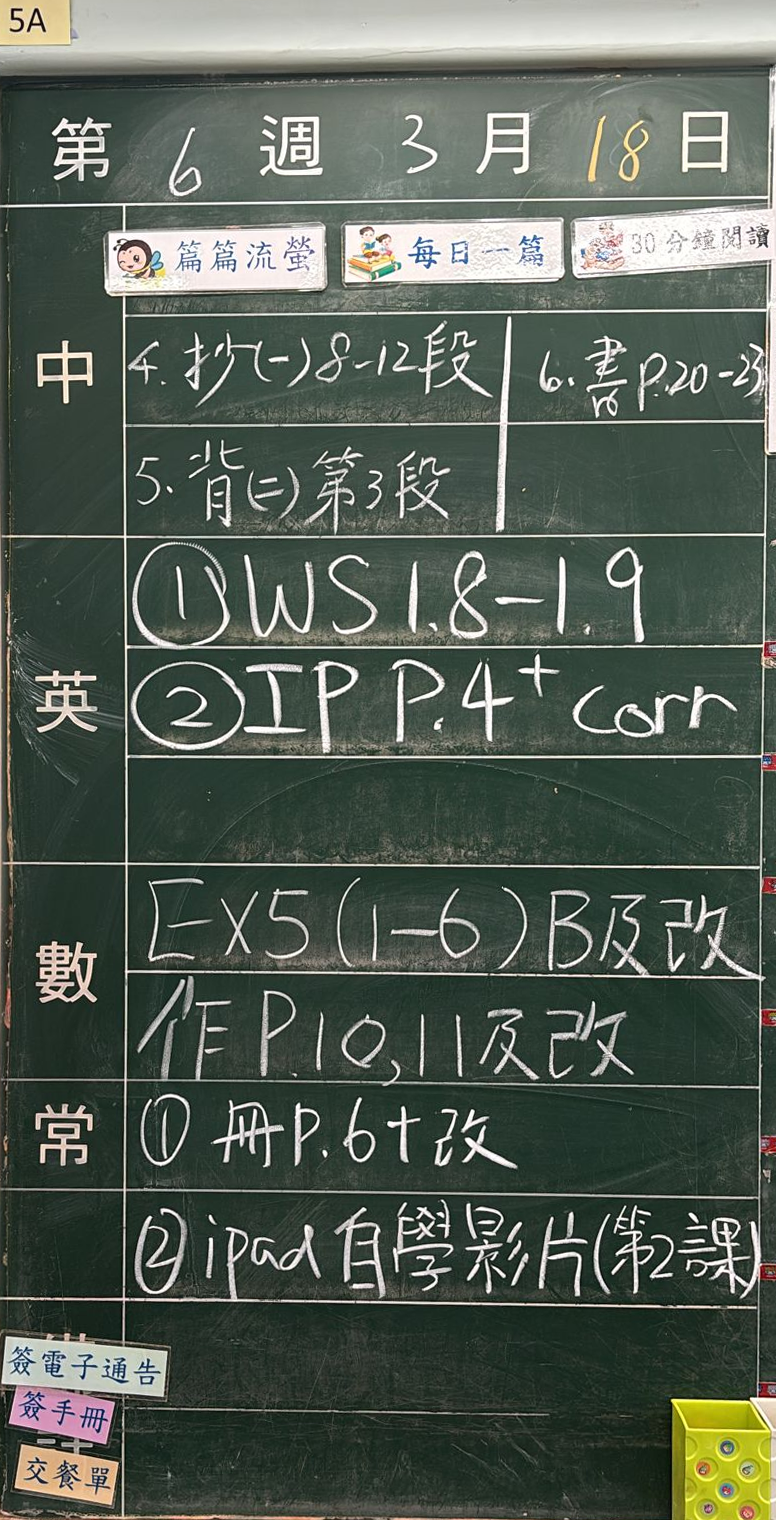 5A
第 6 週 3 月 18 日
篇篇流螢 每日一篇 30分鐘閱讀
中
4. 抄(一) 8-12段
6. 書 P.20-23
5. 背(二) 第3段
英
① WS 1.8-1.9
② IP P.4 + corr
數
EX5 (1-6) B及改
作 P.10, 11及改
常
① 冊P.6+改
② ipad自學影片(第2課)
簽電子通告
簽手冊
交餐單